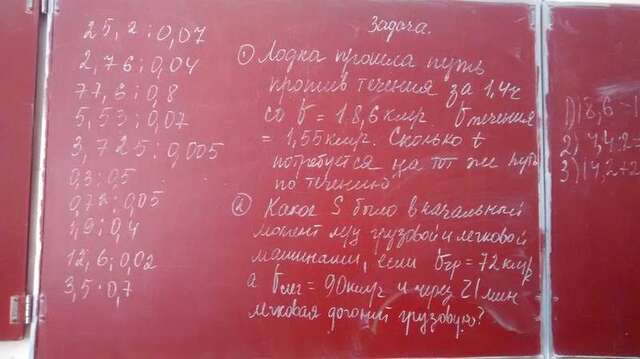 25,2:0,07
2,76:0,04
77,6:0,8
5,53:0,07
3,725:0,005
0,3:0,5
0,72:0,05
1,9:0,4
12,6:0,02
3,5·0,7
Задача.
① Лодка прошла путь
против течения за 1,4ч
со v = 18,6 км/ч v течения
= 1,55 км/ч. Сколько t
потребуется на тот же путь
по течению
② Какое S было в начальный
момент м/у грузовой и легковой
машинами, если vгр = 72 км/ч
а vлег = 90 км/ч и через 21 мин
легковая догонит грузовую?
1) 18,6 -
2)
3) 14,2+2